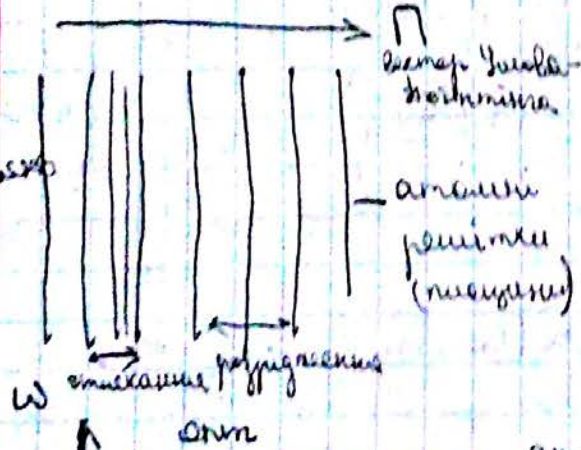 П
вектор Умова-
Пойнтінга
атомні
решітки
(площини)
стискання розрідження
ω
опт